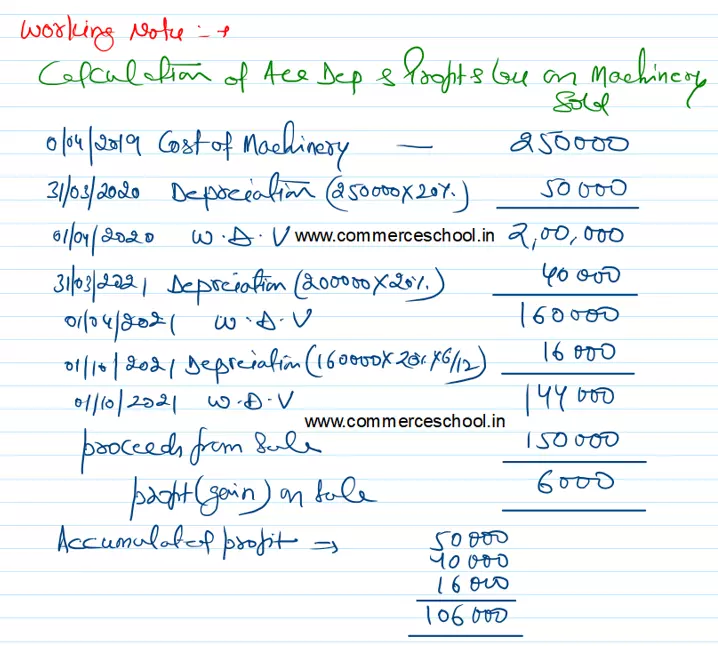 Working Note :→
Calculation of Acc Dep & Profit & loss on Machinery Sold
01/04/2019 Cost of Machinery — 250000
31/03/2020 Depreciation (250000X20%) 50000
01/04/2020 W.D.V www.commerceschool.in 2,00,000
31/03/2021 Depreciation (200000X20%) 40000
01/04/2021 W.D.V 160000
01/10/2021 Depreciation (160000X20%X6/12) 16000
01/10/2021 W.D.V 144000
www.commerceschool.in
proceeds from Sale 150000
profit (gain) on Sale 6000
Accumulated profit ⇒ 50000
40000
16000
106000